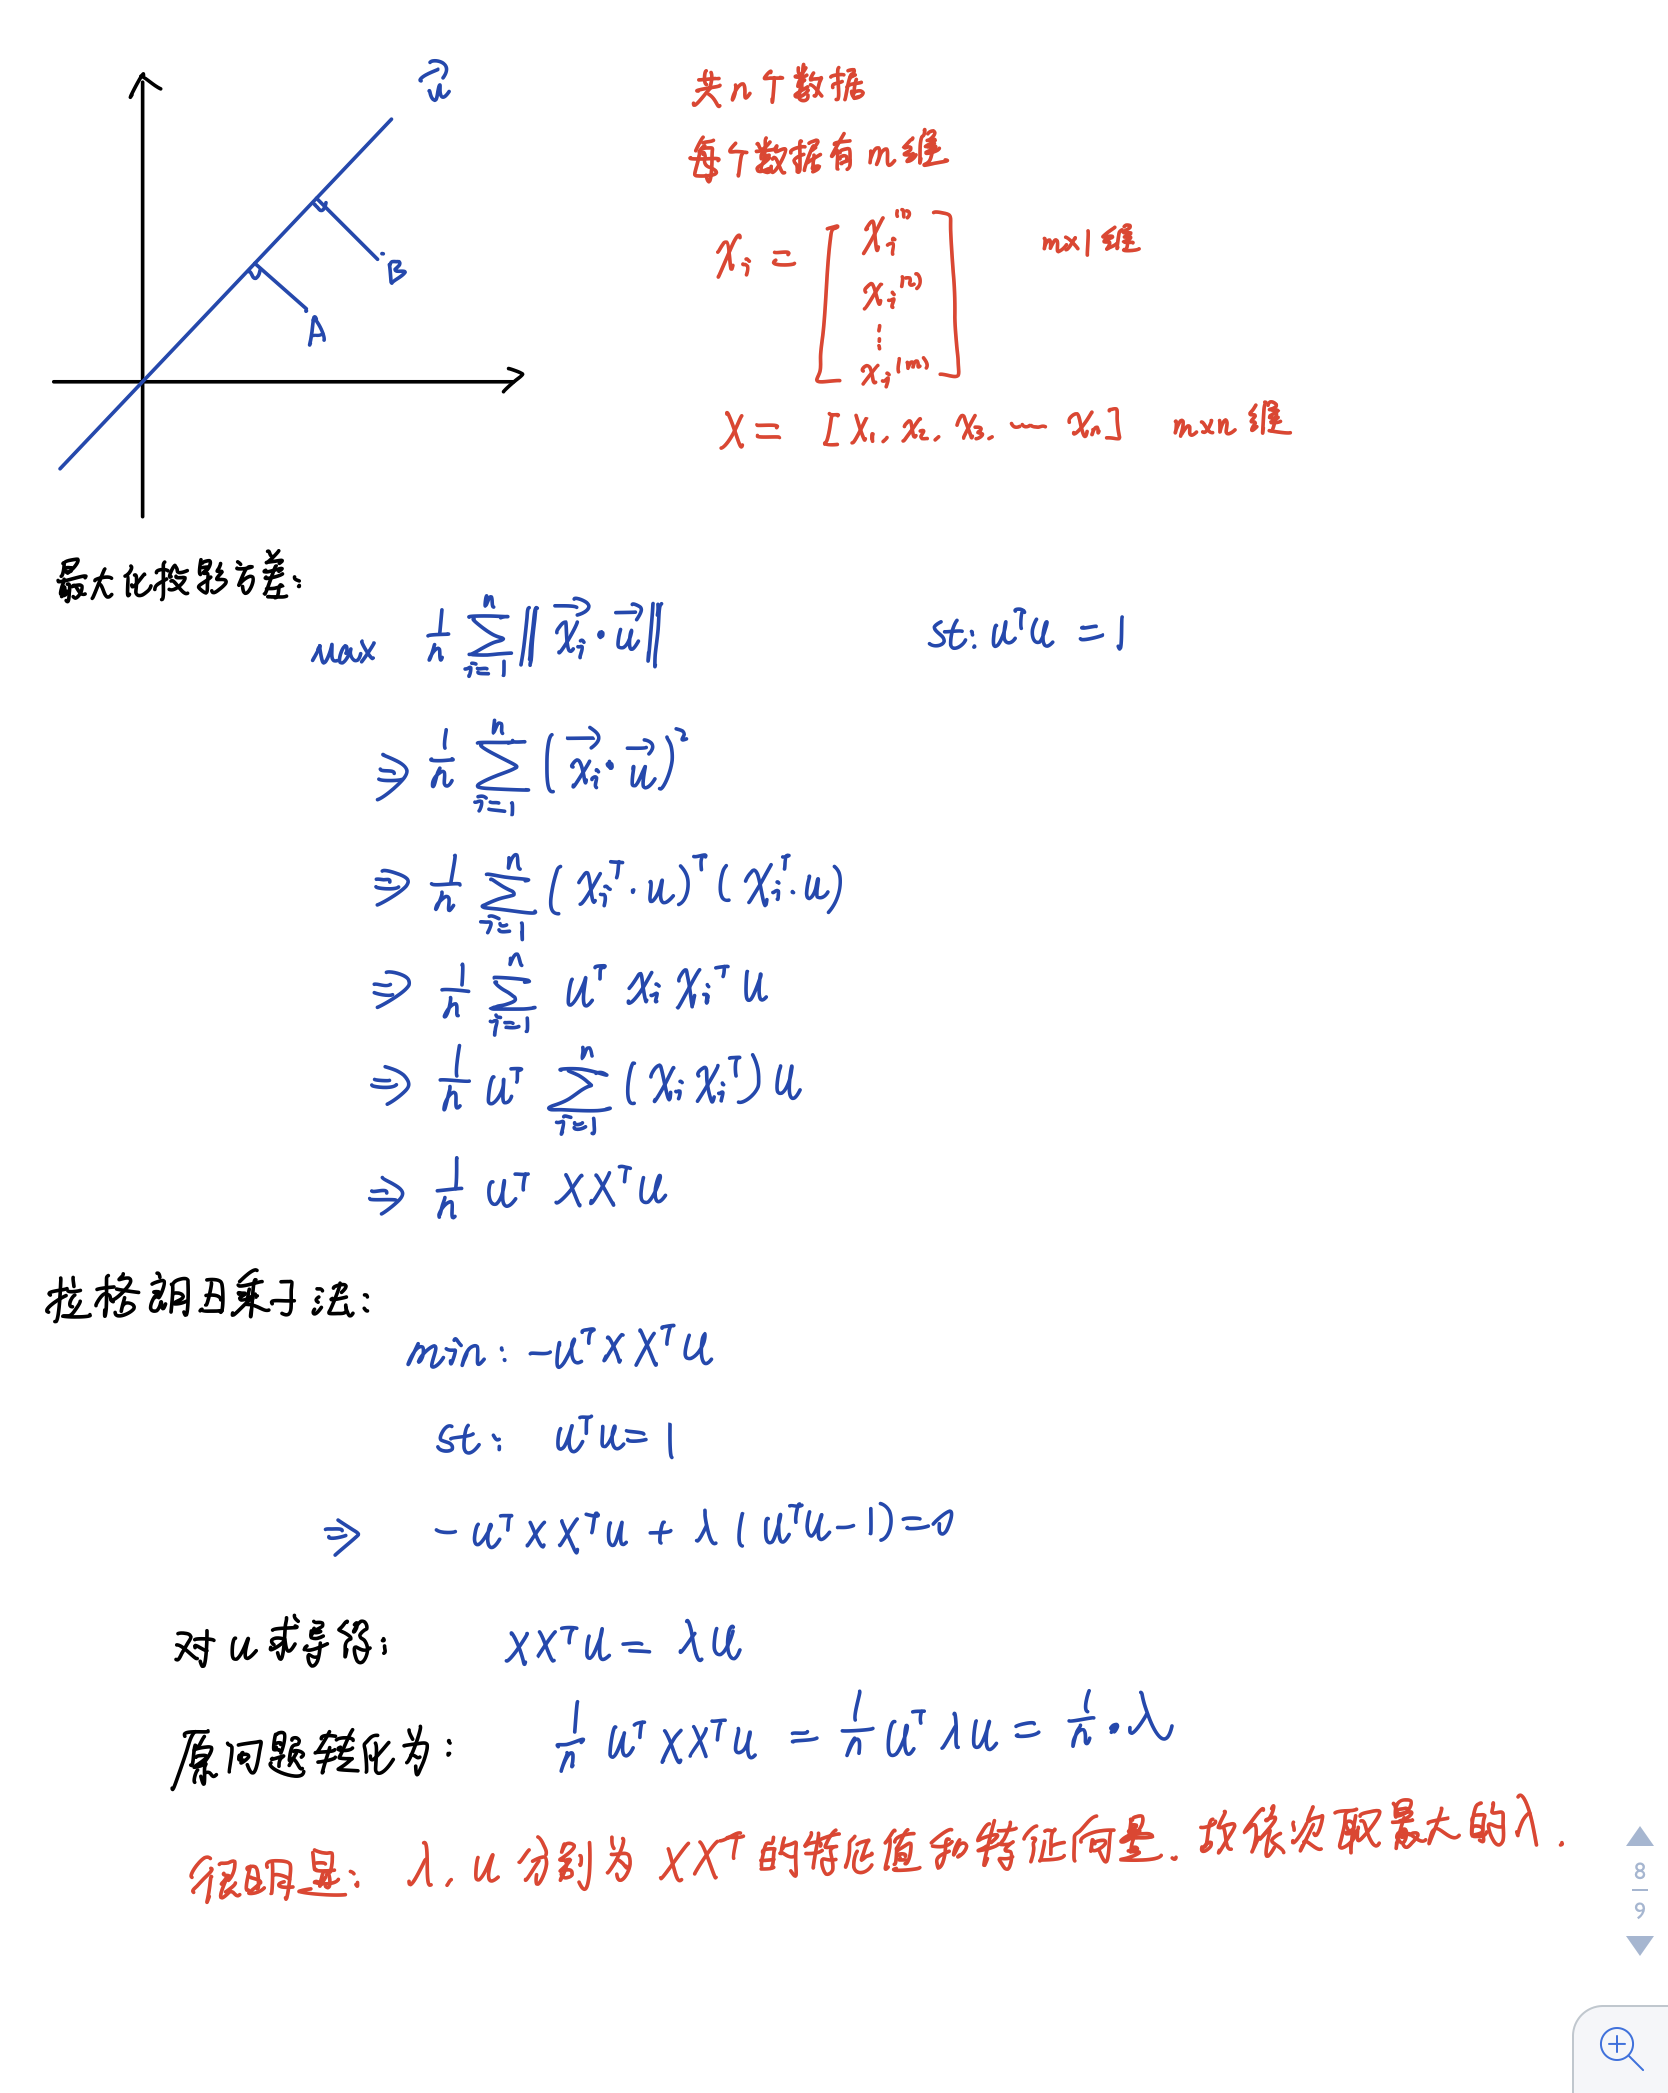 u⃗
B
A
共n个数据
每个数据有m维
xᵢ = [ xᵢ⁽¹⁾ xᵢ⁽²⁾ ⋮ xᵢ⁽ᵐ⁾ ] m×1维
X = [x₁, x₂, x₃, … xₙ] m×n维
最大化投影方差:
max 1/n ∑ᵢ₌₁ⁿ ‖x⃗ᵢ·u⃗‖ st: uᵀu = 1
⇒ 1/n ∑ᵢ₌₁ⁿ (x⃗ᵢ·u⃗)²
⇒ 1/n ∑ᵢ₌₁ⁿ (xᵢᵀ·u)ᵀ(xᵢᵀ·u)
⇒ 1/n ∑ᵢ₌₁ⁿ uᵀ xᵢ xᵢᵀ u
⇒ 1/n uᵀ ∑ᵢ₌₁ⁿ (xᵢ xᵢᵀ) u
⇒ 1/n uᵀ XXᵀu
拉格朗日乘子法:
min: -uᵀXXᵀu
st: uᵀu = 1
⇒ -uᵀXXᵀu + λ(uᵀu-1)=0
对u求导得: XXᵀu = λu
原问题转化为: 1/n uᵀXXᵀu = 1/n uᵀλu = 1/n·λ
很明显: λ, u分别为XXᵀ的特征值和特征向量. 故依次取最大的λ.
8
9